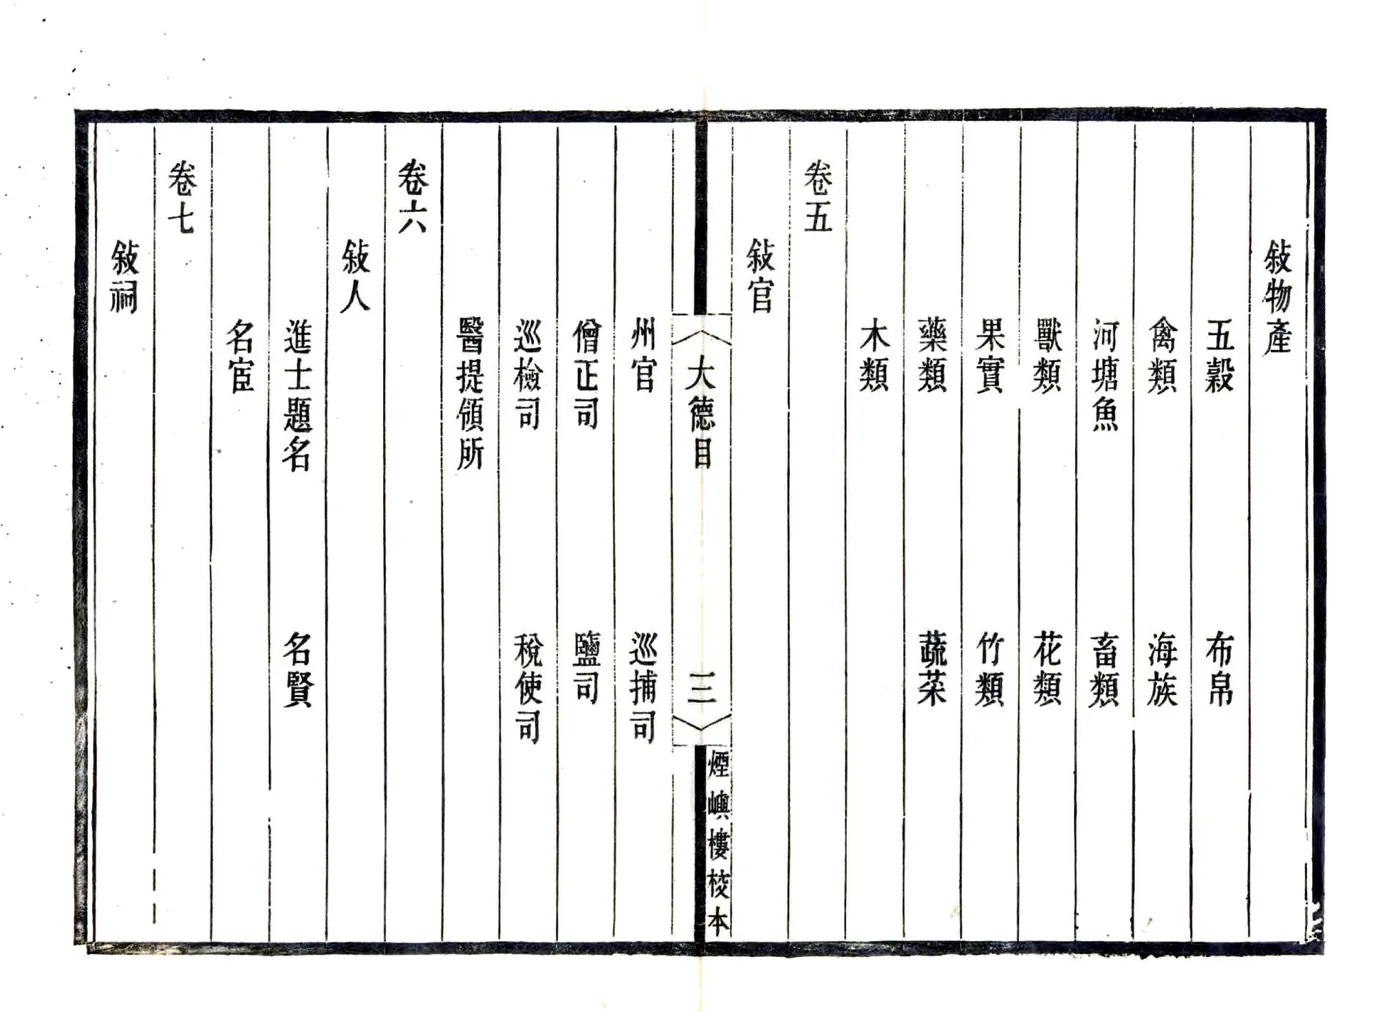 敍物產
五穀 布帛
禽類 海族
河塘魚 畜類
獸類 花類
果實 竹類
藥類 蔬菜
木類
卷五
敍官
大德目 三 煙嶼樓校本
州官 巡捕司
僧正司 鹽司
巡檢司 稅使司
醫提領所
卷六
敍人
進士題名 名賢
名宦
卷七
敍祠